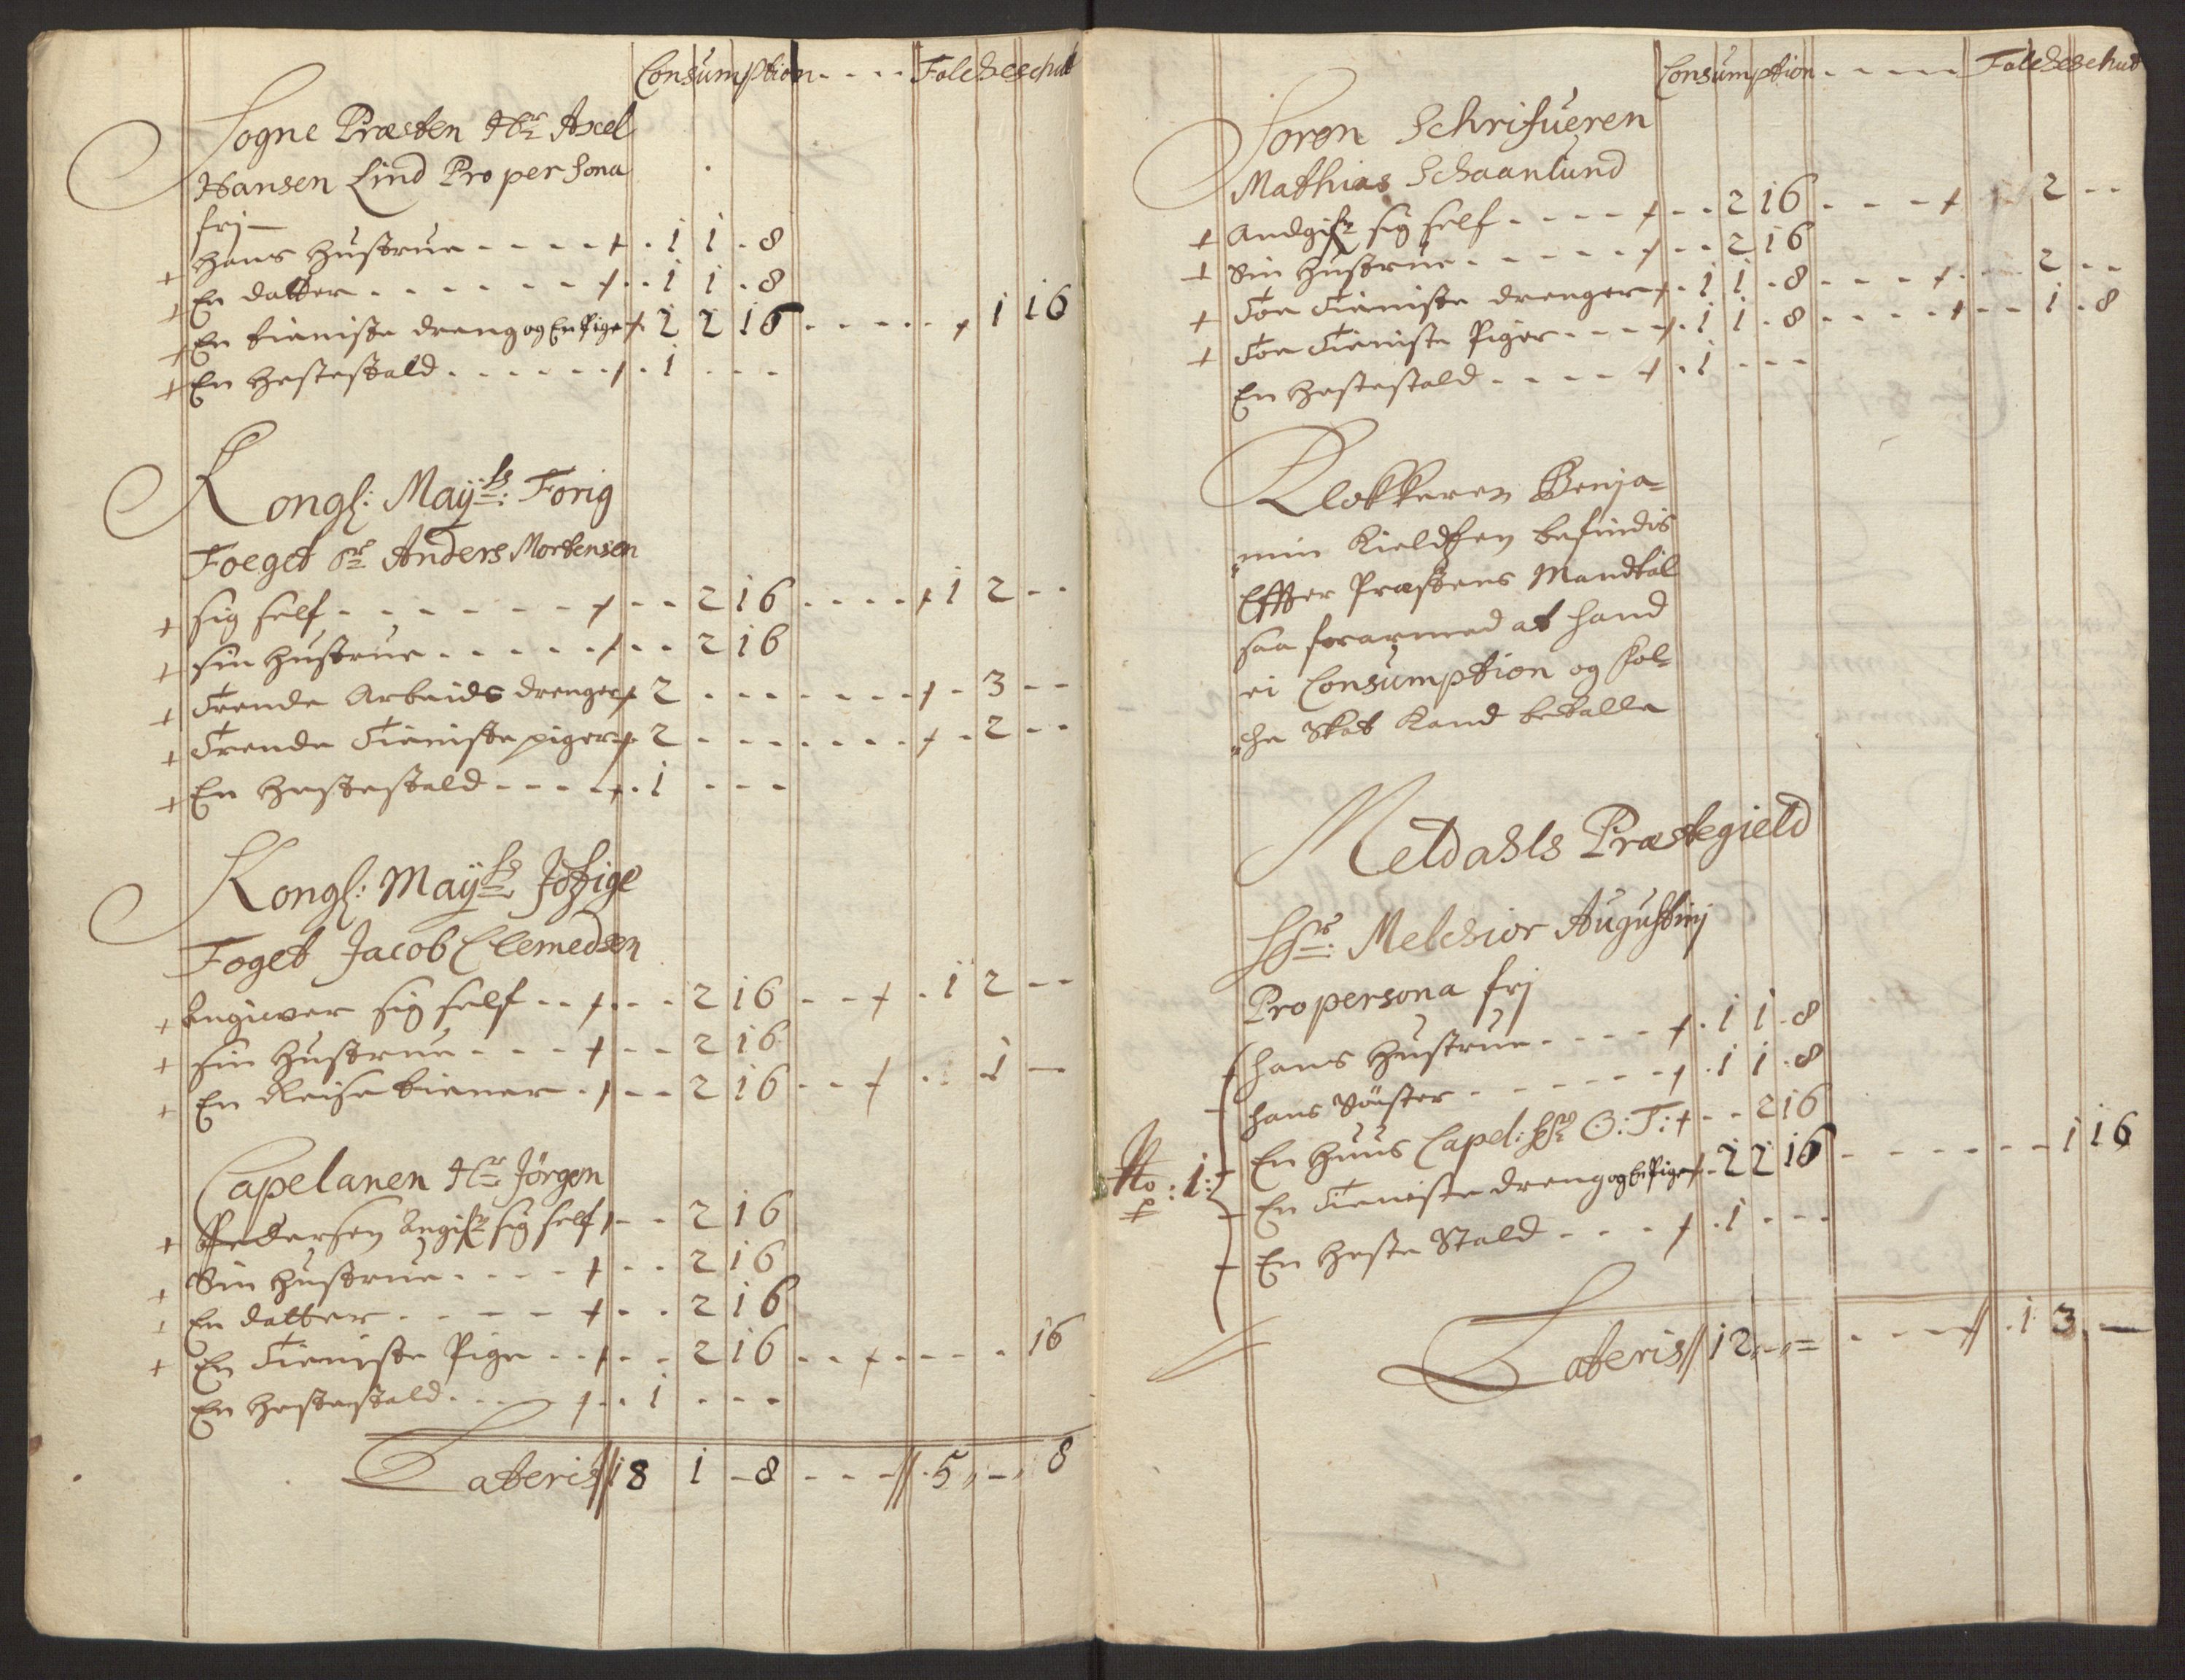 Consumption - - - - Folcheschat
Sogne Præsten Hr Axel
Hansen Lind Pro persona
frj —
+ hans Hustrue - - - - + . 1 1 . 8
+ En datter - - - - - - + . . 1 1 . 8
+ En tieniste dreng og En Pige + 2 2 16 - - - - - + 1 16
+ En hestestald - - - - - - + . 1 - - -
Kongl: Mayts: Forig
Foeget Sr Anders Mortensen
+ sig self - - - - - - - + - - 2 16 - - - - + 1 2 - -
+ sin hustrue - - - - - + - - 2 16
+ Trende Arbeids drenger + 2 - - - - - - - + - 3 - -
+ Trende Tieniste piger + 2 - - - - - - - + - 2 - -
+ En hestestald - - - - + . 1 - - -
Kongl: Mayts Jtzige
Foget Jacob Clemedsen
+ Angiwer sig self - - + - - 2 16 - - + . 1 2 - -
+ sin Hustrue - - - + - - 2 16
+ En Reise tiener - + - - 2 16 - - + - - 1 —
Capelanen Hr Jörgen
+ Pedersen Angifr sig self + - - 2 16
+ Sin Hustrue - - - - + - - 2 16
+ En datter - - - - - + - - 2 16
+ En Tieniste Pige - - + - - 2 16 - - + - - - - 16
En hestestald - - - - + . . 1 - - -
Lateris // 18 1 - 8 - - - // . 5 „ - „ 8
Consumption - - - - - Folcheschat
Soren Schrifueren
Mathias Schaanlund
+ Andgifr sig self - - - - + - - 2 16 - - - - + 2 - -
+ Sin Hustrue - - - - - + - - 2 16
+ Toe Tieniste drenger + . 1 1 . 8 - - - + - - - 2 - -
+ Toe Tieniste Piger - - - + . 1 1 . 8 - - - - + - - 1 . 8
En hestestald - - - - + . 1 - - -
Klokkeren Benja=
min Kieldsen befindis
Effter Præstens Mandtal
saa forarmed at hand
ei Consumption og fol=
che Skat Kand betalle
Meldahls Præstegield
Hr: Melchior Augustinj
Pro persona frj
hans Hustrue - - - - + . 1 1 . 8
hans Söuster - - - - - - + . 1 1 . 8
En Huus Capel: Hr O: T: + - - 2 16
No: 1: En Tieniste dreng og En Pige + . 2 2 16 - - - - - - - 1 16
En heste Stald - - - + . 1 - - -
Lateris // 12 „ - „ = - - - // . 1 3 —